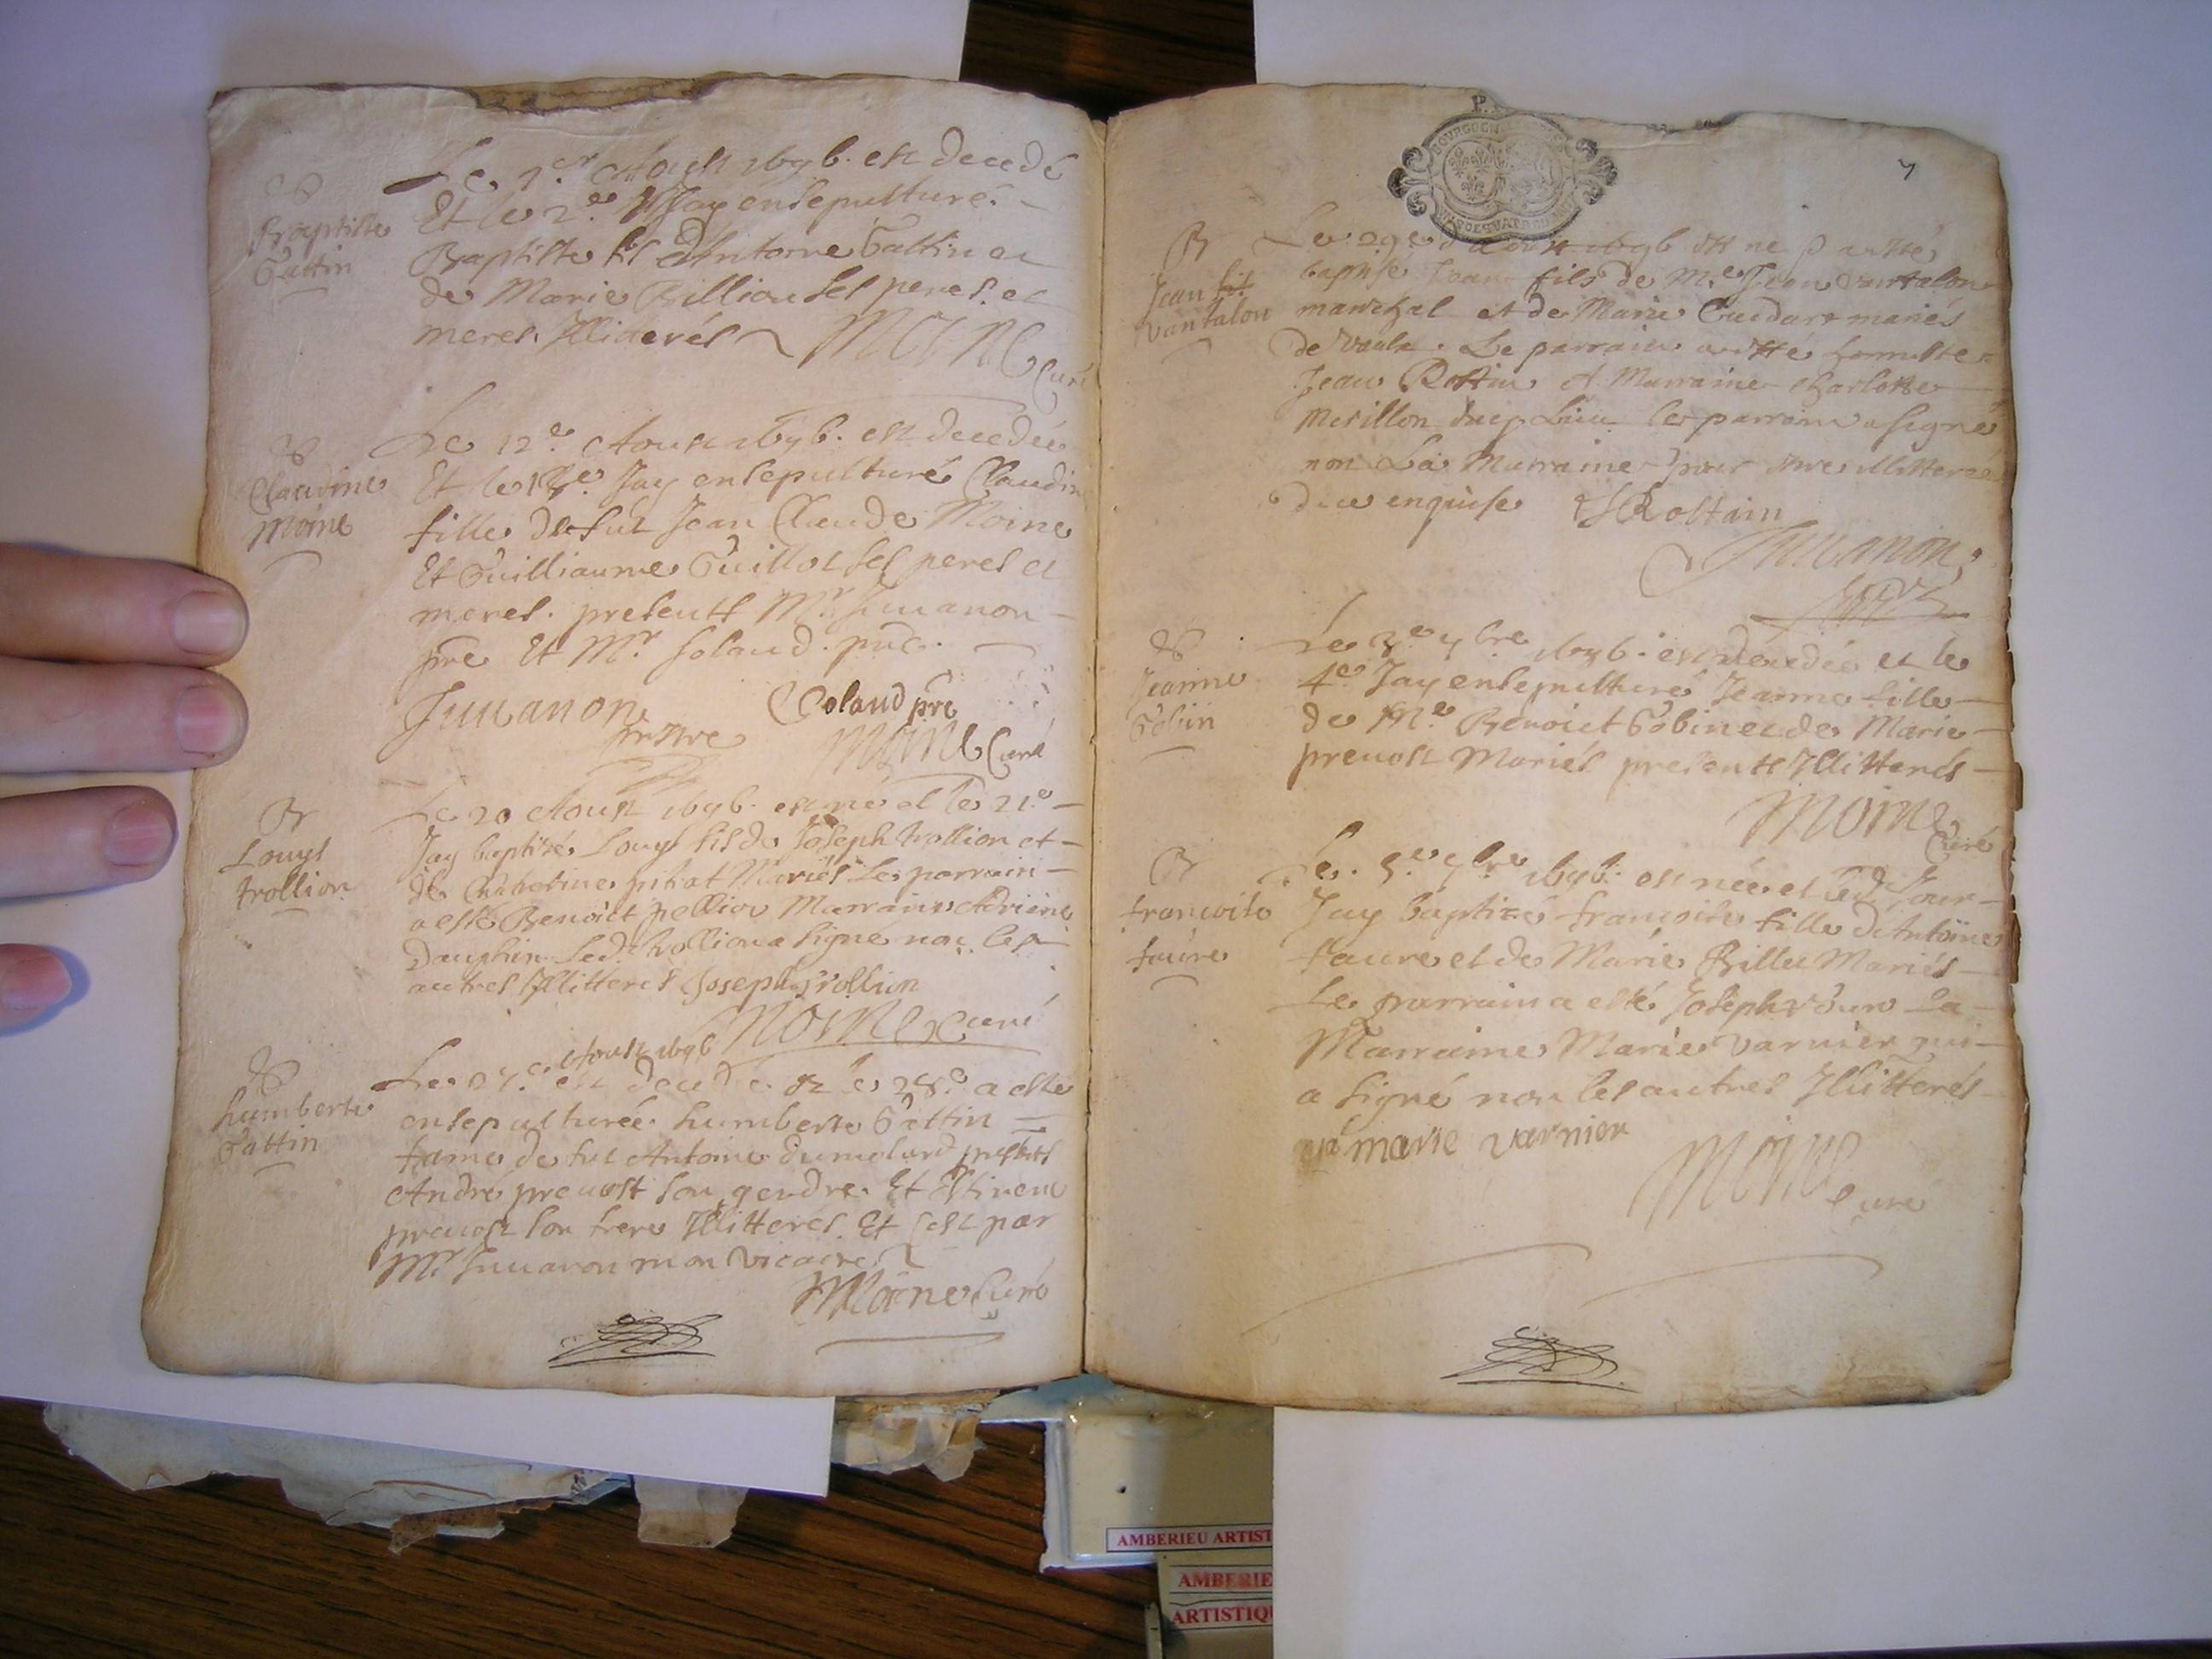 Baptiste
Gattin
Le 1.er Aoust 1696. est decedé
Et le 2.e J'ay ensepulturé
Baptiste fils d'Antoine Gattin et
de Marie Billion ses peres. et
meres. Illiterés
Moine Curé
Claudine
Moine
Le 12.e Aoust 1696. est decedée
Et le Jay ensepulturé Claudine
fille de fut Jean Claude Moine
Et Guilliaume Guillot ses peres et
meres. presents M.r Juuanon
pre Et M.r Solaud. pre.
Juuanon Colaud pre
prestre
Moine Curé
Louys
trollion
Le 20 Aoust 1696. est né et le 21.e
Jay baptizé Louys fils de Joseph trollion et
de Catherine pitiot Mariés Le parrain
a esté Benoict pellion Marraine Adriene
Dauphin Led. trollion a signé non les
autres Illitterés Joseph trollion
Moine Curé
humberte
Gattin
Le 27.e Aoust 1696
est decedée et le 28.e a esté
ensepulturée humberte Gattin
fame de fut Antoine dumolard presents
André preuost son gendre Et Estiene
preuost son frere Illitterés Et c'est par
Mr Juuanon mon vicaire
Moine Curé
P.
BOURGOGN
7
B
Jean fit
vantalon
Le 29e d'aoust 1696 est né et a esté
baptisé Jean fils de M.e Jean vantalon
marechal et de Marie Guedart mariés
de vaulx. Le parrain a esté honneste
Jean Rostain et Marraine charlotte
merillon dud. Lieu Les parrain a signé
non La Marraine pour estre illitterée
de ce enquise Rostain
Juuanon
Jeanne
Gobin
Le 3.e 7bre 1696. est decedée et le
4.e Jay ensepulturé Jeanne fille
de M.e Benoict Gobin et de Marie
preuost Mariés presents Illitterés
Moine
Curé
B
francoise
faure
Le. 5.e 7bre 1696. est née et led. Jour
Jay baptizé françoise fille d'Antoine
faure et de Marie Billet Mariés
Le parrain a esté Joseph La
Marraine Marie varnier qui
a signé non les autres Illitterés
marie varnier
Moine
Curé
AMBERIEU ARTIST
AMBERIE
ARTISTIQU